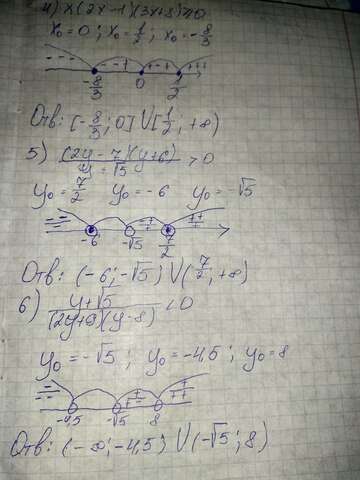 4) x(2x-1)(3x+8)≥0
x₀=0; x₀=1/2; x₀=-8/3
-8/3 0 1/2
Отв: [-8/3; 0] U [1/2; +∞)
5) (2y-7)(y+6)/y=√5 >0
y₀=7/2 y₀=-6 y₀=-√5
-6 -√5 7/2
Отв: (-6; -√5) U (7/2; +∞)
6) y+√5/(2y+9)(y-8) <0
y₀=-√5; y₀=-4,5; y₀=8
-4,5 -√5 8
Отв: (-∞; -4,5) U (-√5; 8)